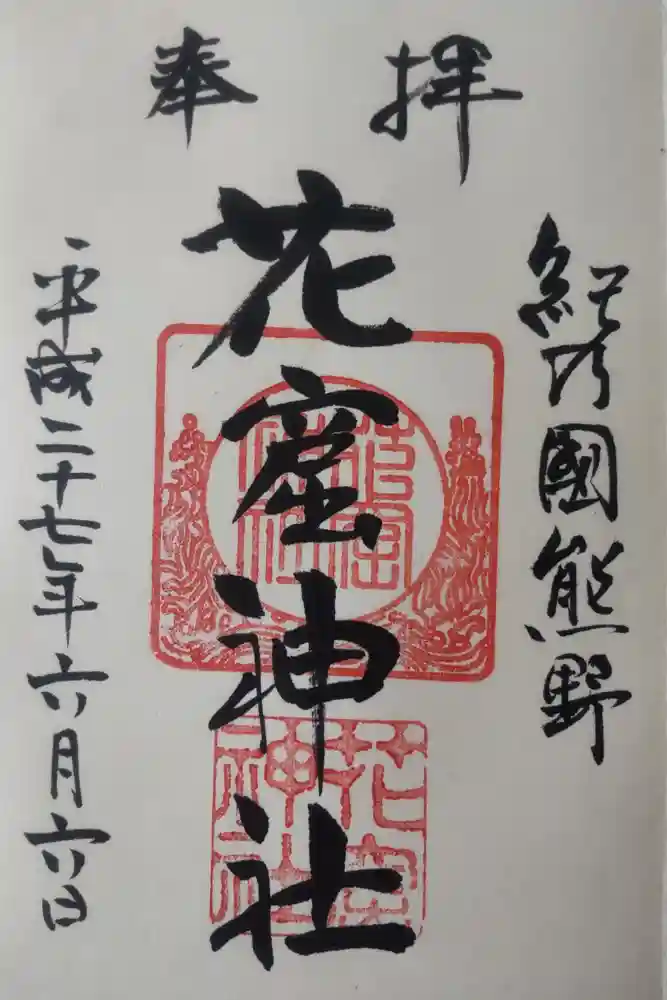 奉拝
紀乃國熊野
花窟神社
平成二十七年六月六日
花窟
神社
花窟
神社